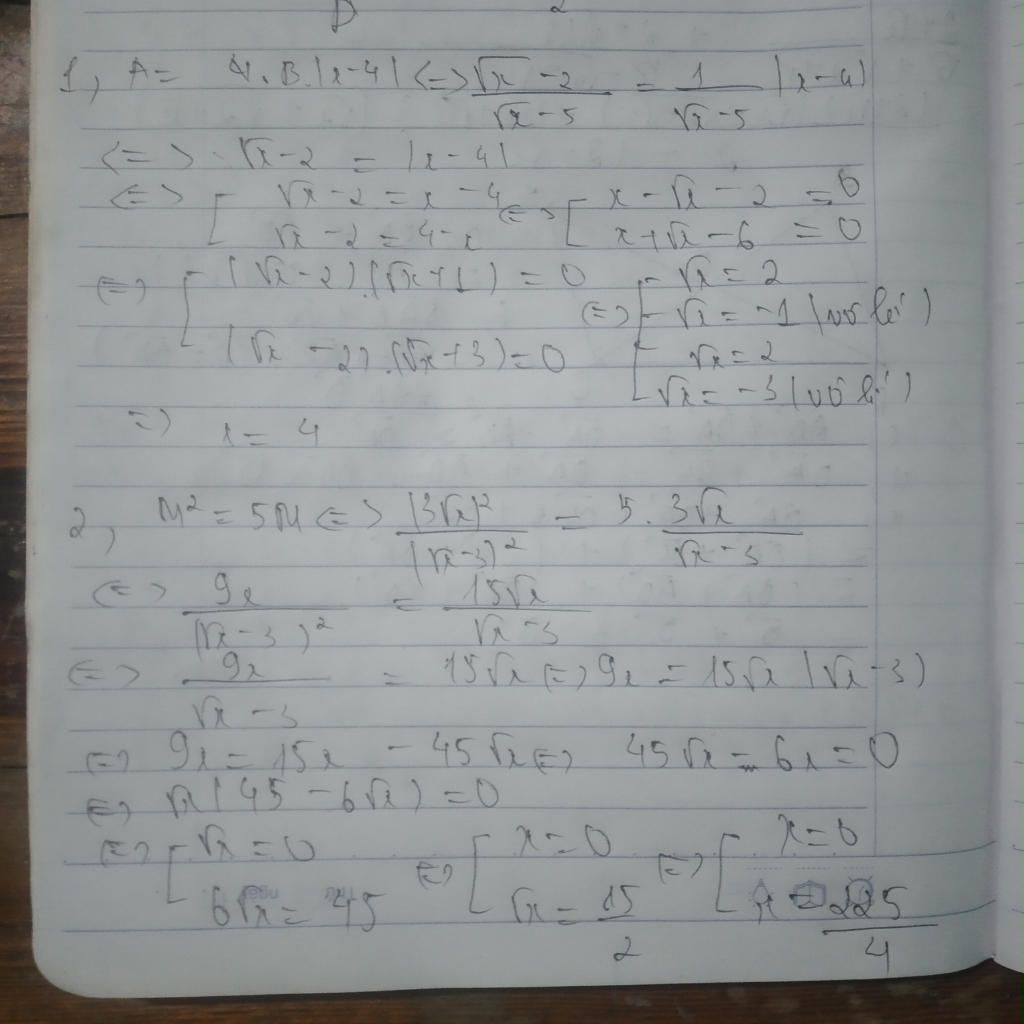 1, A = B.|x-4| <=> \frac{\sqrt{x}-2}{\sqrt{x}-5} = \frac{1}{\sqrt{x}-5} |x-4|
<=> \sqrt{x}-2 = |x-4|
<=> [ \sqrt{x}-2 = x-4 <=> [ x-\sqrt{x}-2 = 0
\sqrt{x}-2 = 4-x x+\sqrt{x}-6 = 0
<=> [ (\sqrt{x}-2).(\sqrt{x}+1) = 0 <=> [ \sqrt{x} = 2
\sqrt{x} = -1 (vô lí)
(\sqrt{x}-2).(\sqrt{x}+3) = 0 \sqrt{x} = 2
\sqrt{x} = -3 (vô lí)
=> x = 4
2, M² = 5M <=> \frac{(3\sqrt{x})^2}{(\sqrt{x}-3)^2} = 5. \frac{3\sqrt{x}}{\sqrt{x}-3}
<=> \frac{9x}{(\sqrt{x}-3)^2} = \frac{15\sqrt{x}}{\sqrt{x}-3}
<=> \frac{9x}{\sqrt{x}-3} = 15\sqrt{x} <=> 9x = 15\sqrt{x} (\sqrt{x}-3)
<=> 9x = 15x - 45\sqrt{x} <=> 45\sqrt{x} - 6x = 0
<=> \sqrt{x}(45-6\sqrt{x}) = 0
<=> [ \sqrt{x} = 0 <=> [ x = 0 <=> [ x = 0
6\sqrt{x} = 45 \sqrt{x} = \frac{15}{2} x = \frac{225}{4}